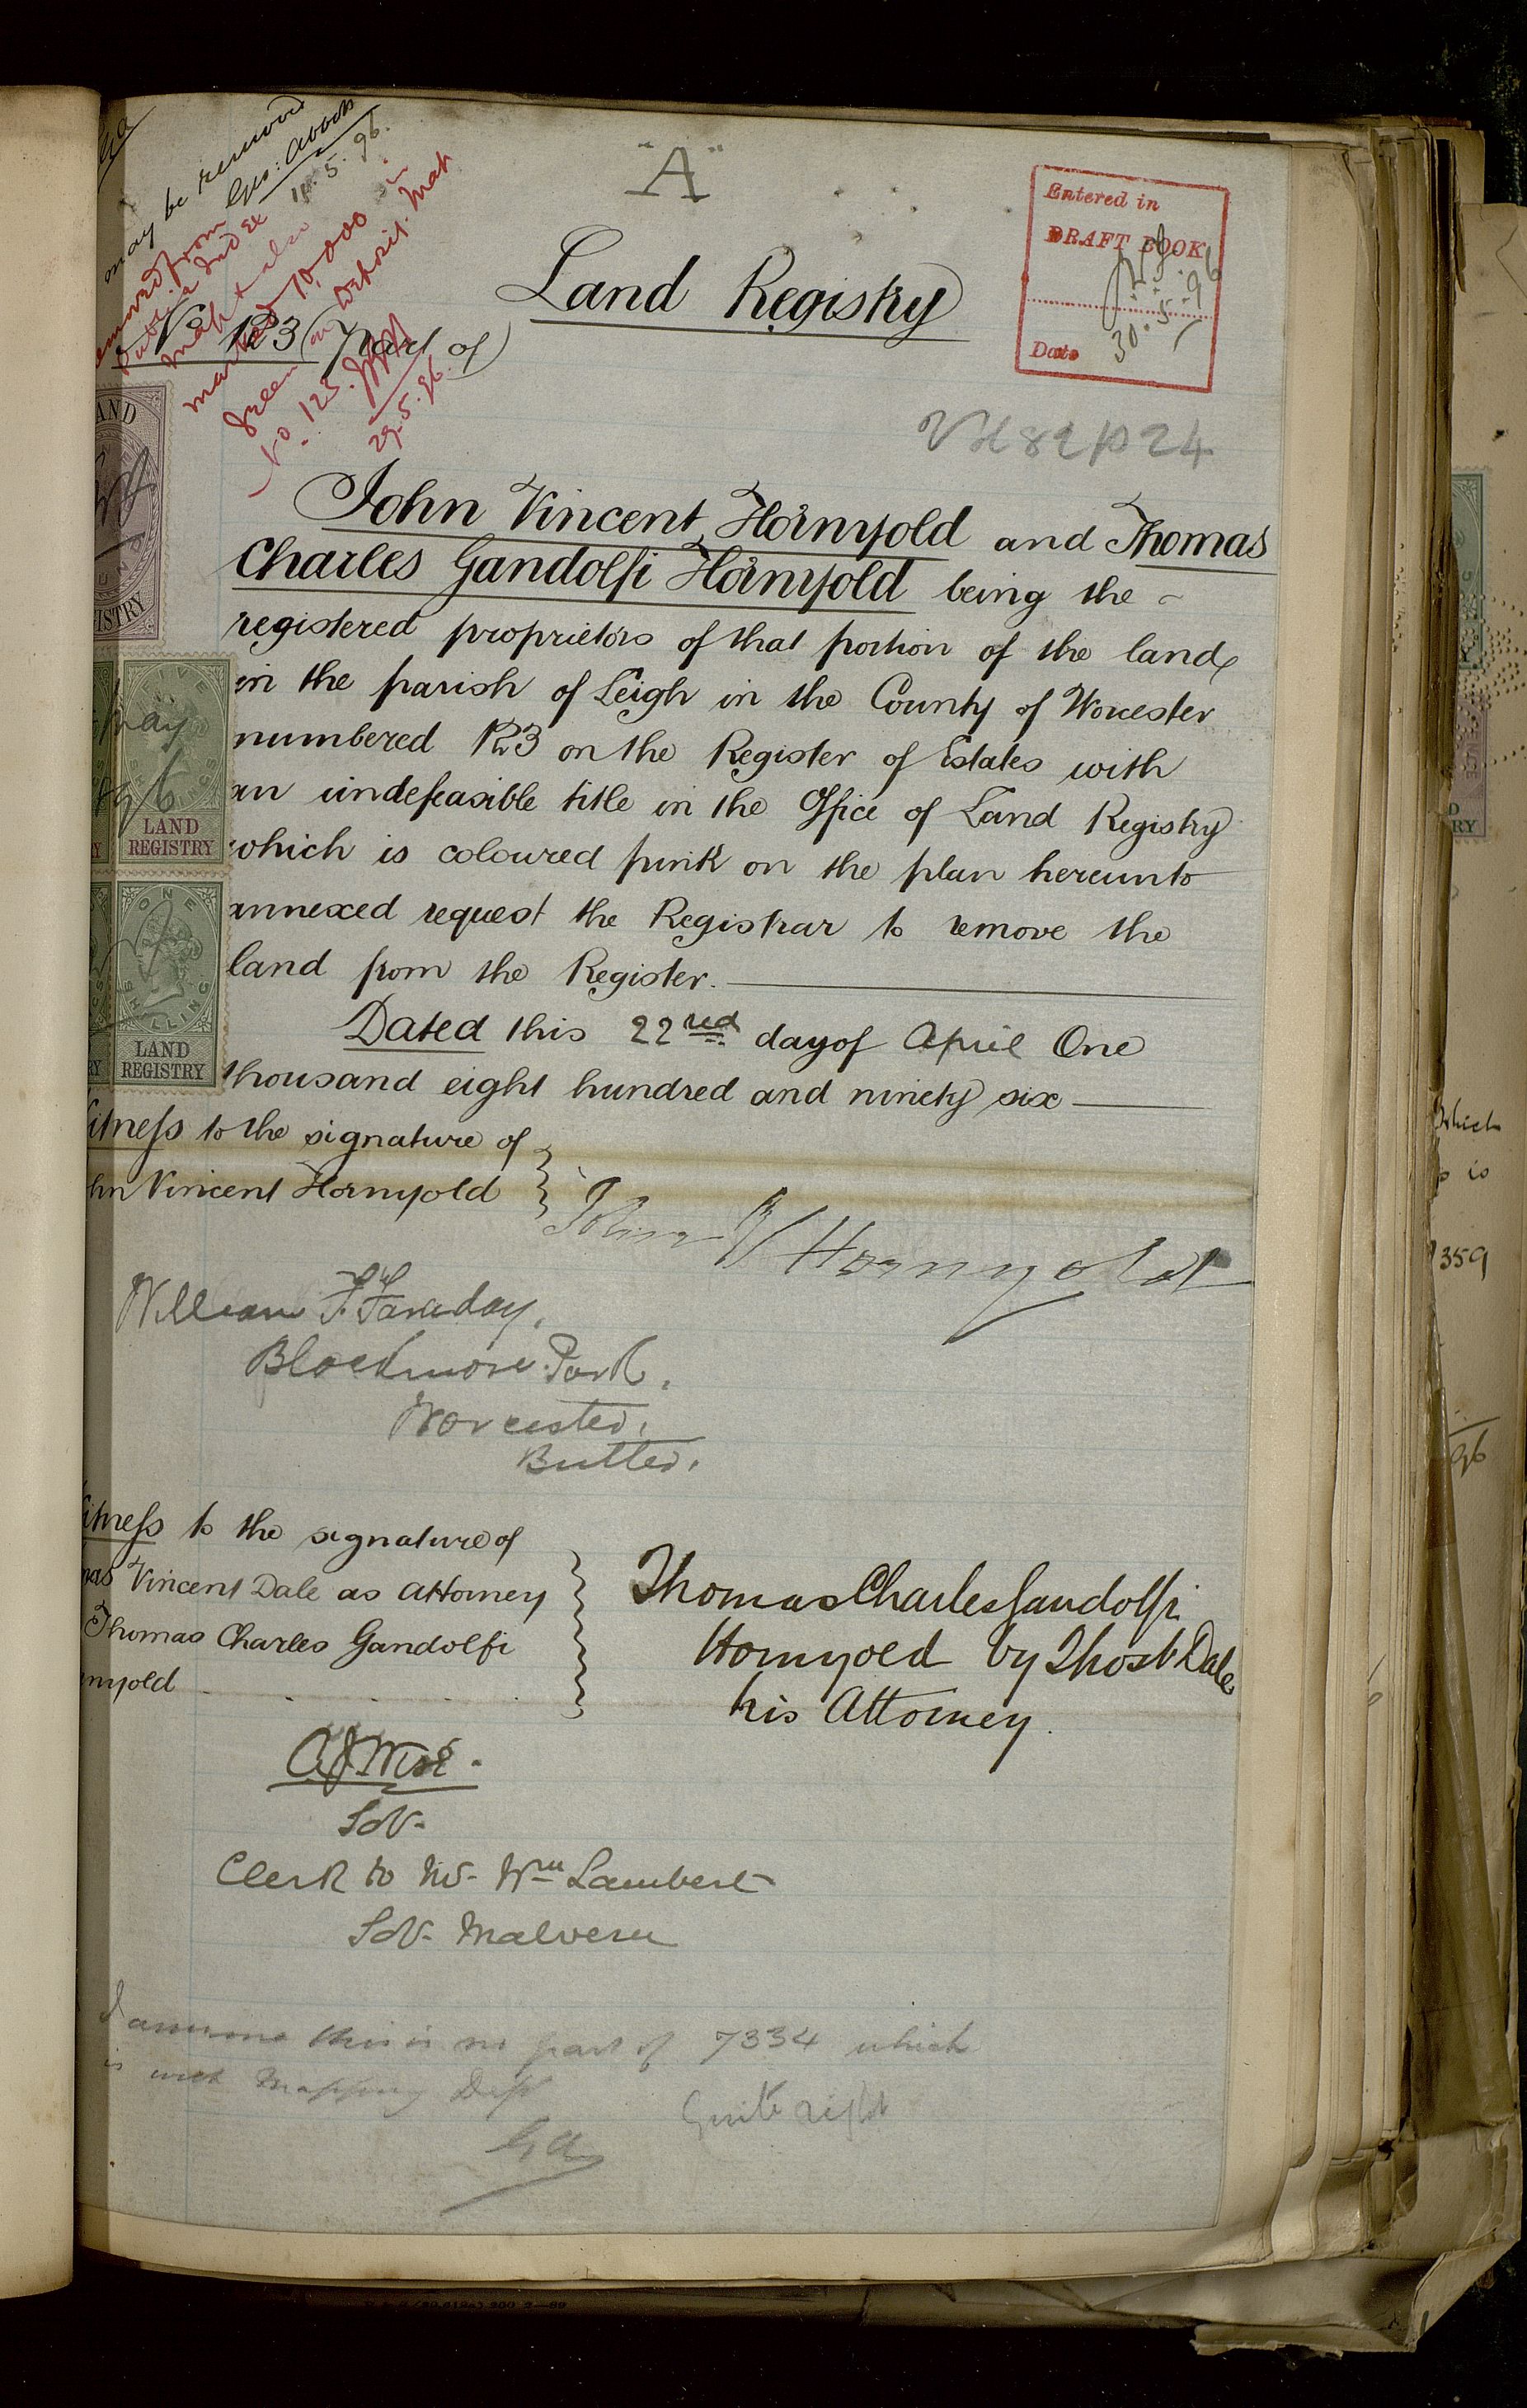 "A"
may be removed
Geo: Abbott
11.5.96.
removed from
Index
Map & also
marked 10,000 in
Green on Deposit. Map
No. 123.
29.5.96.
Entered in
DRAFT BOOK
30.5.96
Date
Land Registry
No 123 (Part of)
Vol 82 p 24
John Vincent Hornyold and Thomas
Charles Gandolfi Hornyold being the
registered proprietors of that portion of the land
in the parish of Leigh in the County of Worcester
numbered 123 on the Register of Estates with
an indefeasible title in the Office of Land Registry
which is coloured pink on the plan hereunto
annexed request the Registrar to remove the
land from the Register.
Dated this 22nd day of April One
thousand eight hundred and ninety six
itness to the signature of
hn Vincent Hornyold
John V Hornyold
William F. Faraday,
Blackmore Park,
Worcester,
Butler.
itness to the signature of
mas Vincent Dale as Attorney
Thomas Charles Gandolfi
rnyold
Thomas Charles Gandolfi
Hornyold by Thos V Dale
his Attorney.
Clerk to Mr. Wm Lambert
Solr. Malvern
I assume this is no part of 7334 which
is with Mapping Dept
GA
Quite right
AND
ISTRY
FIVE
LAND
REGISTRY
May
1896
ONE
SHILLING
LAND
REGISTRY
which
is
359
96